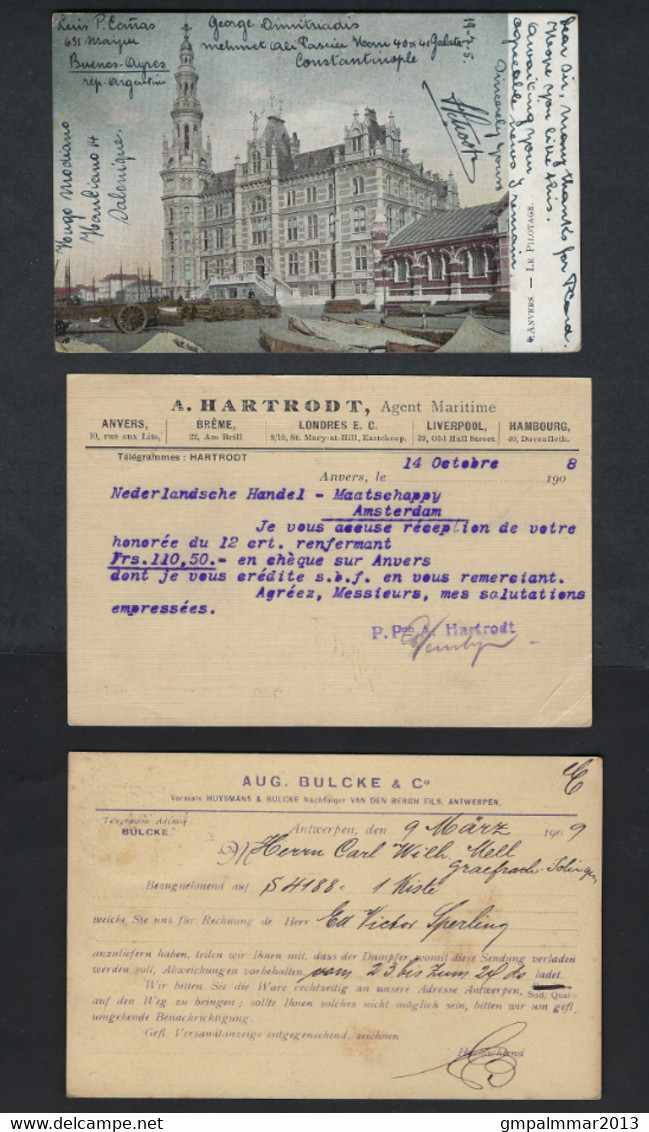 Luis P. Cañas
631 Maipu
Buenos-Ayres
rep. Argentina
George Dimitriadis
mehmet Ali Pascier Harm 40 a 41 Galata
Constantinople
19-7-5
Hugo Modiano
14
Salonique.
Dear Sir, Many thanks for Pcard
Hope you like this.
Awaiting your
agreeable news I remain
Sincerely yours
ANVERS. — LE PILOTAGE.
A. HARTRODT, Agent Maritime
ANVERS, BRÊME, LONDRES E. C. LIVERPOOL, HAMBOURG,
10, rue aux Lits, 22, Am Brill 9/10, St. Mary-at-Hill, Eastcheap. 39, Old Hall Street. 40, Dovenfleth.
Télégrammes : HARTRODT
Anvers, le 14 Octobre 190 8
Nederlandsche Handel - Maatschappy
Amsterdam
Je vous accuse réception de votre
honorée du 12 crt. renfermant
Frs.110,50.- en chèque sur Anvers
dont je vous crédite s.b.f. en vous remerciant.
Agréez, Messieurs, mes salutations
empressées.
P. Pon A. Hartrodt
AUG. BULCKE & Co
Vormals HUYSMANS & BULCKE Nachfolger VAN DEN BERGH FILS, ANTWERPEN.
Telegramm-Adresse
BULCKE.
Antwerpen, den 9 März 190 9
M Herrn Carl Wilh. Mell
Graefrath-Solingen
Bezugnehmend auf S 4188 - 1 Kiste
welche Sie uns für Rechnung de Herr Ed Victor Sperling
anzuliefern haben, teilen wir Ihnen mit, dass der Dampfer, womit diese Sendung verladen
werden soll, Abweichungen vorbehalten, vom 23 bis zum 24 ds ladet.
Wir bitten Sie die Ware rechtzeitig an unsere Adresse Antwerpen, Süd, Quai
auf den Weg zu bringen; sollte Ihnen solches nicht möglich sein, bitten wir um gefl.
umgehende Benachrichtigung.
Gefl. Versandtanzeige entgegensehend, zeichnen
Hochachtend
delcampe.net
gmpalmmar2013